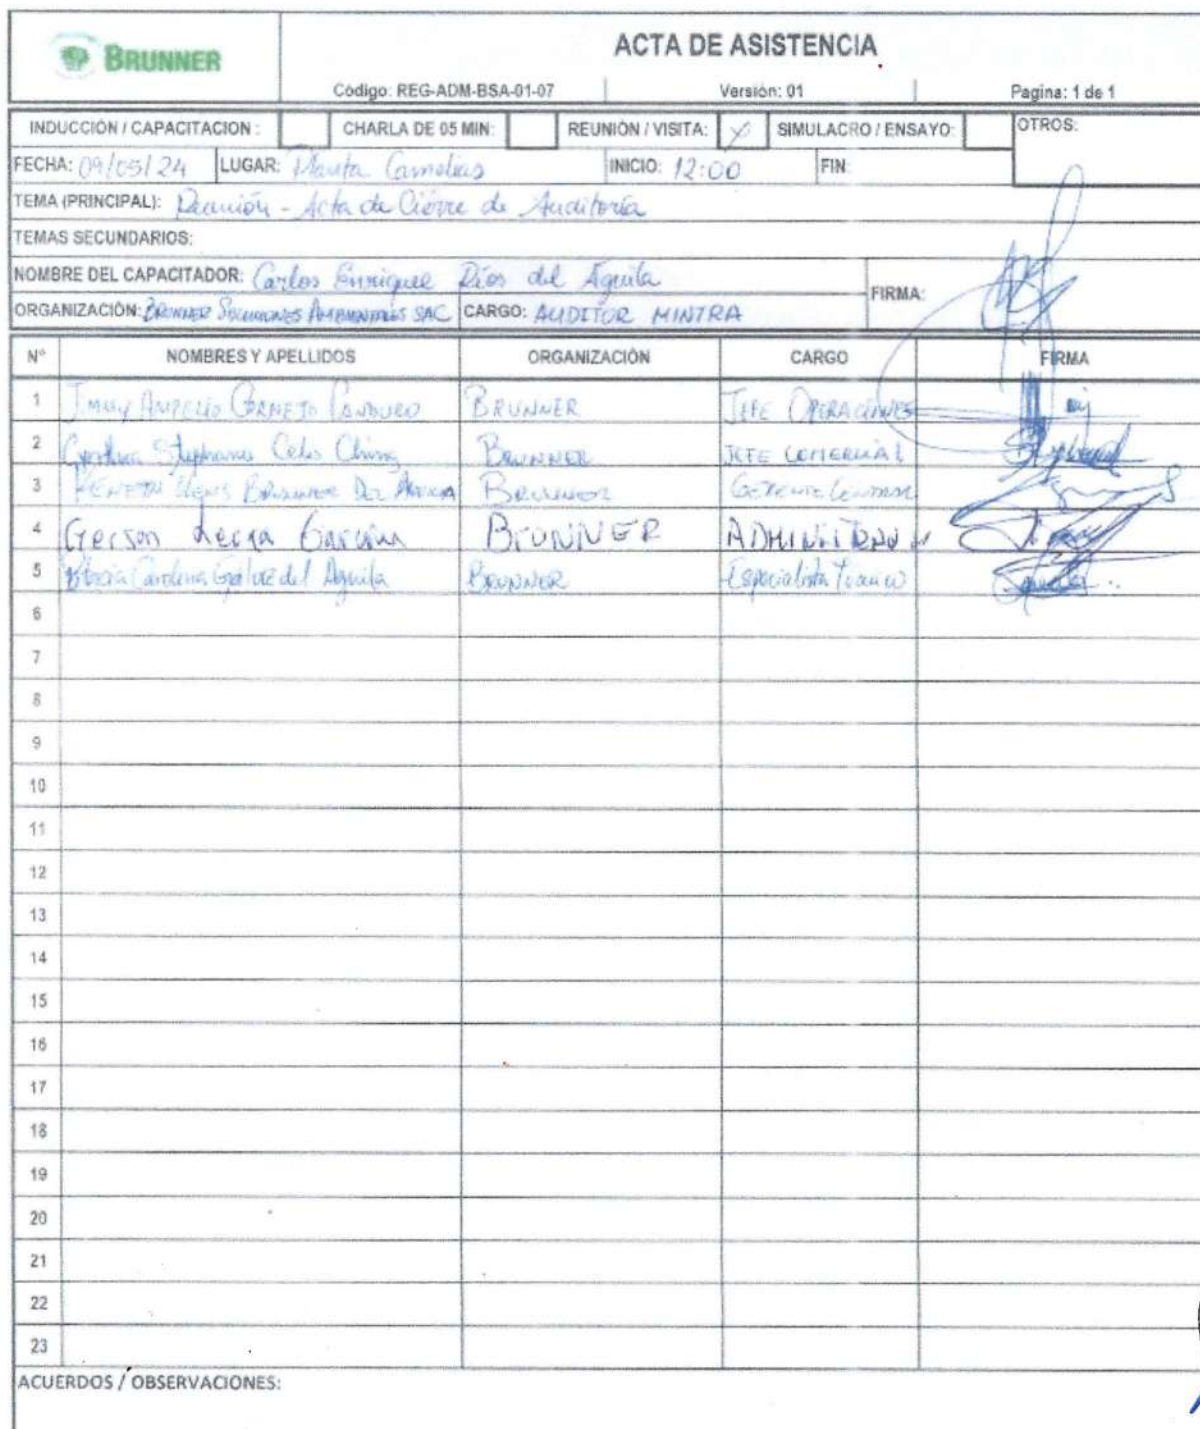 BRUNNER
ACTA DE ASISTENCIA
Código: REG-ADM-BSA-01-07 Versión: 01 Pagina: 1 de 1
INDUCCIÓN / CAPACITACION : CHARLA DE 05 MIN: REUNIÓN / VISITA: X SIMULACRO / ENSAYO: OTROS:
FECHA: 09/05/24 LUGAR: Planta Camelias INICIO: 12:00 FIN:
TEMA (PRINCIPAL): Reunión - Acta de Cierre de Auditoría
TEMAS SECUNDARIOS:
NOMBRE DEL CAPACITADOR: Carlos Enrique Ríos del Aguila
FIRMA:
ORGANIZACIÓN: BRUNNER SOLUCIONES AMBIENTALES SAC CARGO: AUDITOR MINTRA
N° NOMBRES Y APELLIDOS ORGANIZACIÓN CARGO FIRMA
1 BRUNNER JEFE OPERACIONES
2 Stephanie Celis Ching BRUNNER JEFE COMERCIAL
3 BRUNNER DEL BRUNNER GERENTE GENERAL
4 Gerson BrUNNER
5 Carolina Galvez del Aguila BRUNNER Especialista
6
7
8
9
10
11
12
13
14
15
16
17
18
19
20
21
22
23
ACUERDOS / OBSERVACIONES: